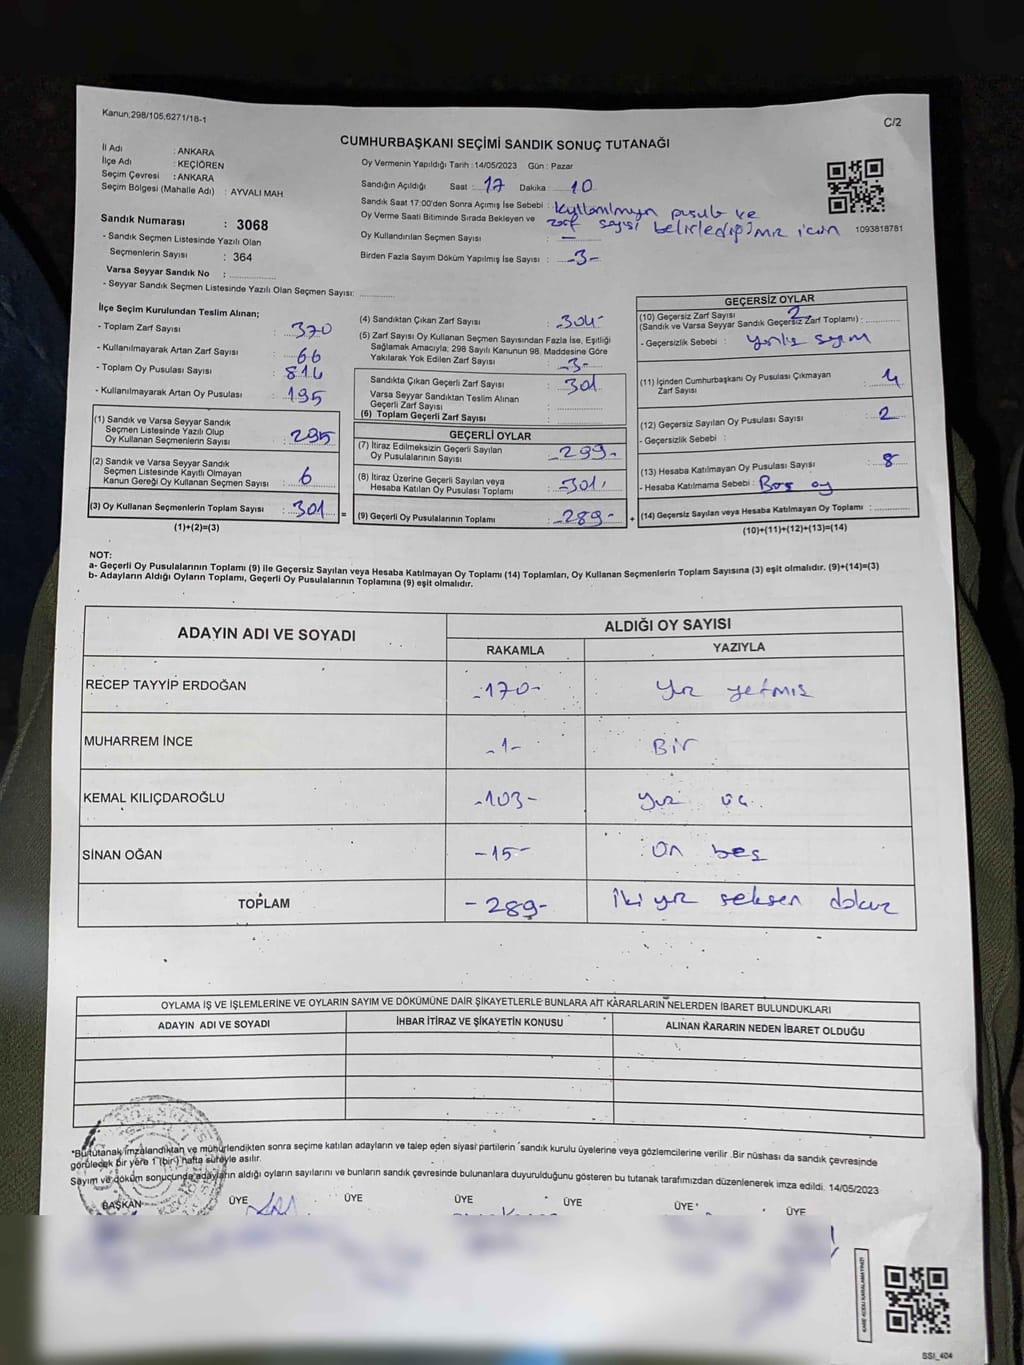 Kanun;298/105,6271/18-1
C/2
CUMHURBAŞKANI SEÇİMİ SANDIK SONUÇ TUTANAĞI
İl Adı : ANKARA
İlçe Adı : KEÇİÖREN
Seçim Çevresi : ANKARA
Seçim Bölgesi (Mahalle Adı) : AYVALI MAH
Sandık Numarası : 3068
- Sandık Seçmen Listesinde Yazılı Olan
Seçmenlerin Sayısı : 364
Varsa Seyyar Sandık No :
- Seyyar Sandık Seçmen Listesinde Yazılı Olan Seçmen Sayısı:
Oy Vermenin Yapıldığı Tarih : 14/05/2023 Gün : Pazar
Sandığın Açıldığı Saat : 17 Dakika : 10
Sandık Saat 17:00'den Sonra Açımış İse Sebebi : Kullanılmayan pusula ve
Oy Verme Saati Bitiminde Sırada Bekleyen ve zarf sayısı belirlediğimiz için
Oy Kullandırılan Seçmen Sayısı : -
Birden Fazla Sayım Döküm Yapılmış İse Sayısı : -3-
1093818781
İlçe Seçim Kurulundan Teslim Alınan;
- Toplam Zarf Sayısı : 370
- Kullanılmayarak Artan Zarf Sayısı : 66
- Toplam Oy Pusulası Sayısı :
- Kullanılmayarak Artan Oy Pusulası : 195
(1) Sandık ve Varsa Seyyar Sandık
Seçmen Listesinde Yazılı Olup
Oy Kullanan Seçmenlerin Sayısı : 295
(2) Sandık ve Varsa Seyyar Sandık
Seçmen Listesinde Kayıtlı Olmayan
Kanun Gereği Oy Kullanan Seçmen Sayısı : 6
(3) Oy Kullanan Seçmenlerin Toplam Sayısı : 301
(1)+(2)=(3)
(4) Sandıktan Çıkan Zarf Sayısı : 304-
(5) Zarf Sayısı Oy Kullanan Seçmen Sayısından Fazla İse, Eşitliği
Sağlamak Amacıyla; 298 Sayılı Kanunun 98. Maddesine Göre
Yakılarak Yok Edilen Zarf Sayısı : -3-
Sandıkta Çıkan Geçerli Zarf Sayısı : 301
Varsa Seyyar Sandıktan Teslim Alınan
Geçerli Zarf Sayısı :
(6) Toplam Geçerli Zarf Sayısı :
GEÇERLİ OYLAR
(7) İtiraz Edilmeksizin Geçerli Sayılan
Oy Pusulalarının Sayısı : -299-
(8) İtiraz Üzerine Geçerli Sayılan veya
Hesaba Katılan Oy Pusulası Toplamı : -301-
(9) Geçerli Oy Pusulalarının Toplamı : -289-
GEÇERSİZ OYLAR
(10) Geçersiz Zarf Sayısı 2
(Sandık ve Varsa Seyyar Sandık Geçersiz Zarf Toplamı) :
- Geçersizlik Sebebi : yanlış sayım
(11) İçinden Cumhurbaşkanı Oy Pusulası Çıkmayan
Zarf Sayısı : 4
(12) Geçersiz Sayılan Oy Pusulası Sayısı : 2
- Geçersizlik Sebebi :
(13) Hesaba Katılmayan Oy Pusulası Sayısı : 8
- Hesaba Katılmama Sebebi : Boş oy
(14) Geçersiz Sayılan veya Hesaba Katılmayan Oy Toplamı :
(10)+(11)+(12)+(13)=(14)
NOT:
a- Geçerli Oy Pusulalarının Toplamı (9) ile Geçersiz Sayılan veya Hesaba Katılmayan Oy Toplamı (14) Toplamları, Oy Kullanan Seçmenlerin Toplam Sayısına (3) eşit olmalıdır. (9)+(14)=(3)
b- Adayların Aldığı Oyların Toplamı, Geçerli Oy Pusulalarının Toplamına (9) eşit olmalıdır.
ADAYIN ADI VE SOYADI ALDIĞI OY SAYISI
RAKAMLA YAZIYLA
RECEP TAYYİP ERDOĞAN -170- Yüz yetmiş
MUHARREM İNCE -1- Bir
KEMAL KILIÇDAROĞLU -103- Yüz üç
SİNAN OĞAN -15- On beş
TOPLAM -289- İki yüz seksen dokuz
OYLAMA İŞ VE İŞLEMLERİNE VE OYLARIN SAYIM VE DÖKÜMÜNE DAİR ŞİKAYETLERLE BUNLARA AİT KARARLARIN NELERDEN İBARET BULUNDUKLARI
ADAYIN ADI VE SOYADI İHBAR İTİRAZ VE ŞİKAYETİN KONUSU ALINAN KARARIN NEDEN İBARET OLDUĞU
*Bu tutanak imzalandıktan ve mühürlendikten sonra seçime katılan adayların ve talep eden siyasi partilerin sandık kurulu üyelerine veya gözlemcilerine verilir .Bir nüshası da sandık çevresinde
görülecek bir yere 1 (bir) hafta süreyle asılır.
Sayım ve döküm sonucunda adayların aldığı oyların sayılarını ve bunların sandık çevresinde bulunanlara duyurulduğunu gösteren bu tutanak tarafımızdan düzenlenerek imza edildi. 14/05/2023
BAŞKAN ÜYE ÜYE ÜYE ÜYE ÜYE ÜYE
KARE KODU KARALAMAYINIZ!
SSI_404